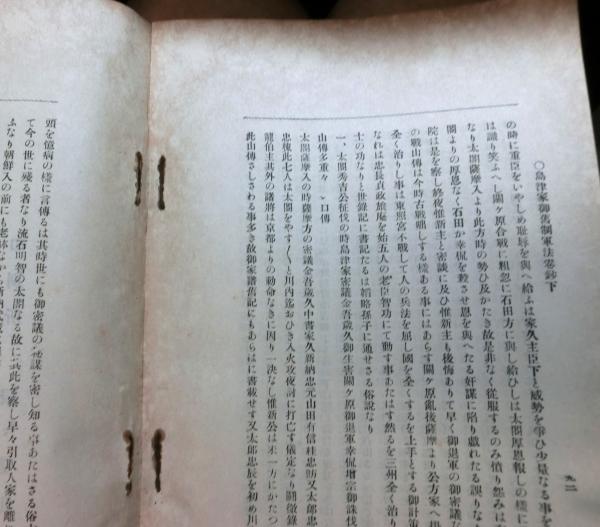 〇島津家御舊制軍法卷鈔下
の時に重臣をいやしめ恥辱を與へ給ふは家久主臣下と威勢を爭ひ少量なる事
は譏り笑ふへし關ケ原合戰に粗忽に石田方に與し給ひしは太閤厚恩報しの樣に
なり太閤薩摩入より此方時の勢ひ及かたき故是非なく從服するのみ憤り怨みは
閤よりの厚恩なく石田か幸侃を殺させ恩を與へたる奸謀に陷り戲れたる誤りな
院は其を察し終夜惟新主と密談に及ひ惟新主も後悔ありて早く御退軍の御密議
の戰山傳は今時古戰咄しする樣ある事にはあらす關ケ原亂後薩摩より公方家へ
全く治りし事は東照宮不戰して人の兵法を屈し國を全くするを上手とする御計策
なれは忠長貞政旅庵を始五人の老臣智功にて動す事あたはす然るを三州全く治り
士の功なりと世錄記に書記たるは韜略孫子に通せさる俗說なり
一、太閤秀吉公征伐の時島津家密議金吾歲久御生害關ケ原御退軍幸侃增宗御誅伐
山傳多重々ゝ口傳
太閤薩摩入の時薩摩方の密議金吾歲久中書家久新納忠元山田有信桂忠昉又太郎忠
忠棟此七人は太閤をやすく〳〵と川內迄おひき入火攻夜討に打亡す儀定なり關徵錄
龍伯主其外の諸將は京都よりの勅命なきに因り一決なし惟新公は未一方にかたつ
此山傳さしさわる事多き故御家譜舊記にもあらはに書載せす又太郎忠辰を初め川
九二
頭を憶病の樣に言傳るは其時世にも御密議の
て今の世に殘る者なり流石明智の太閤なる故に其此を察し早々引取人家を離
ふなり朝鮮入の前にも老